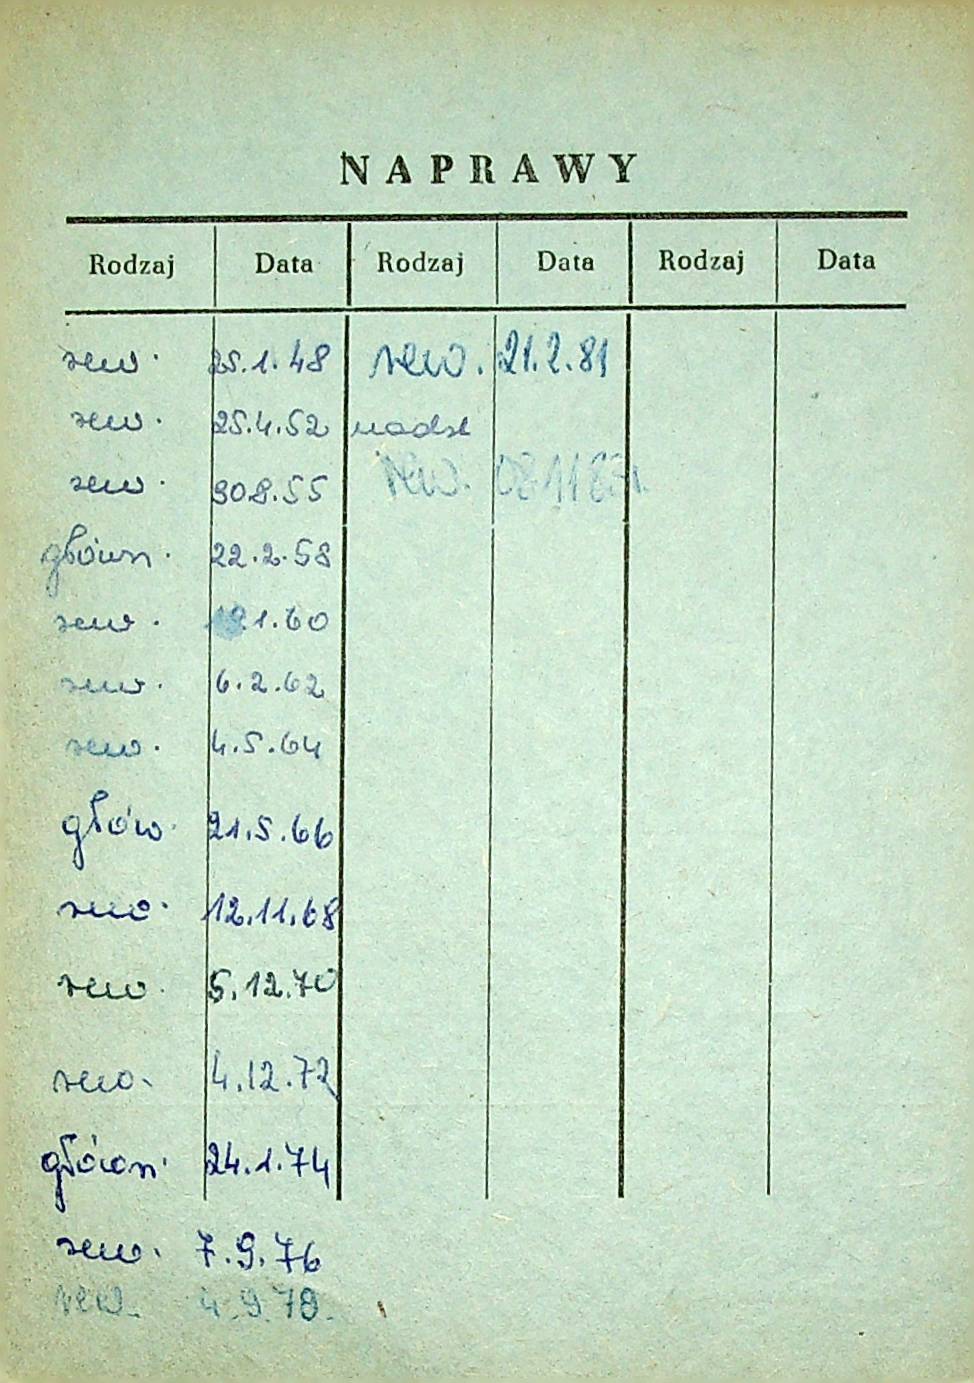 NAPRAWY
Rodzaj Data Rodzaj Data Rodzaj Data
rew. 25.1.48 rew. 21.2.81
rew. 25.4.52 nadzt
rew. 308.55 rew.
główn. 22.2.58
rew. 1.60
rew. 6.2.62
rew. 4.5.64
głów. 21.5.66
rew. 12.11.68
rew. 5.12.70
rew. 4.12.72
główn. 24.1.74
rew. 7.9.76
rew. 4.9.78.